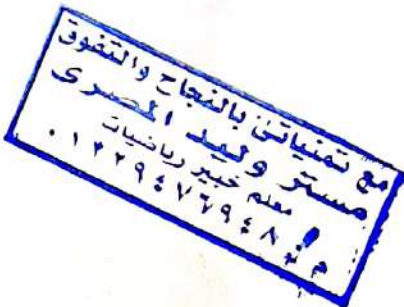 مع تمنياتى بالنجاح والتفوق
مستر وليد المصرى
معلم خبير رياضيات
م/ ٠١٢٢٩٤٧٦٩٤٨